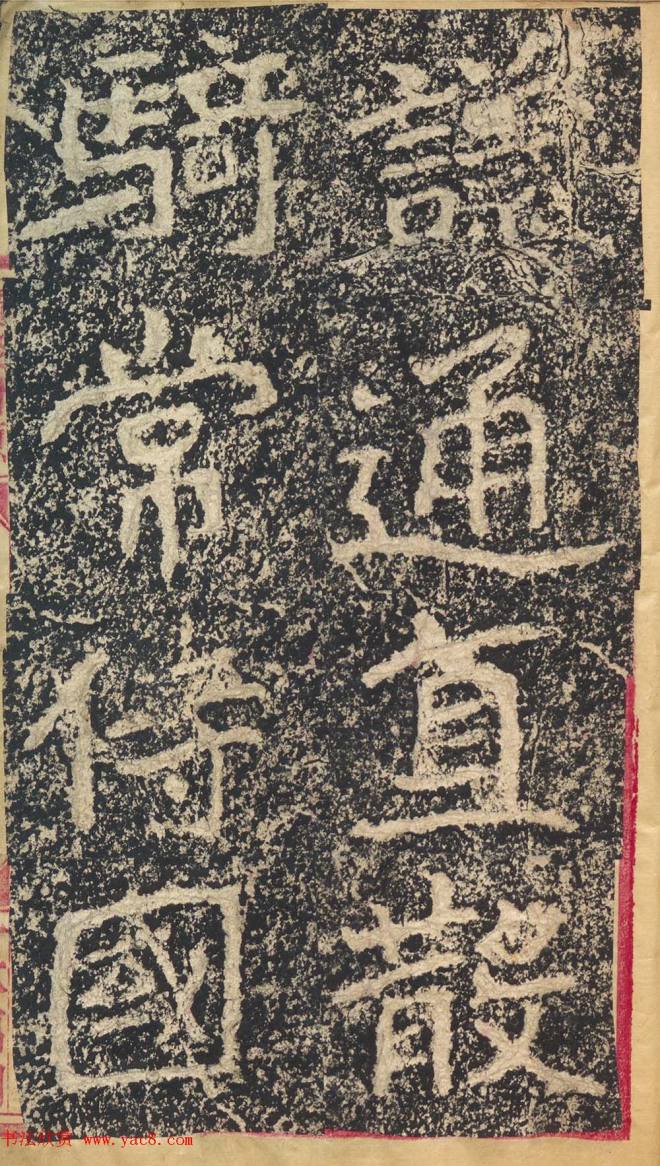 議通直散
騎常侍國
书法欣赏 www.yac8.com